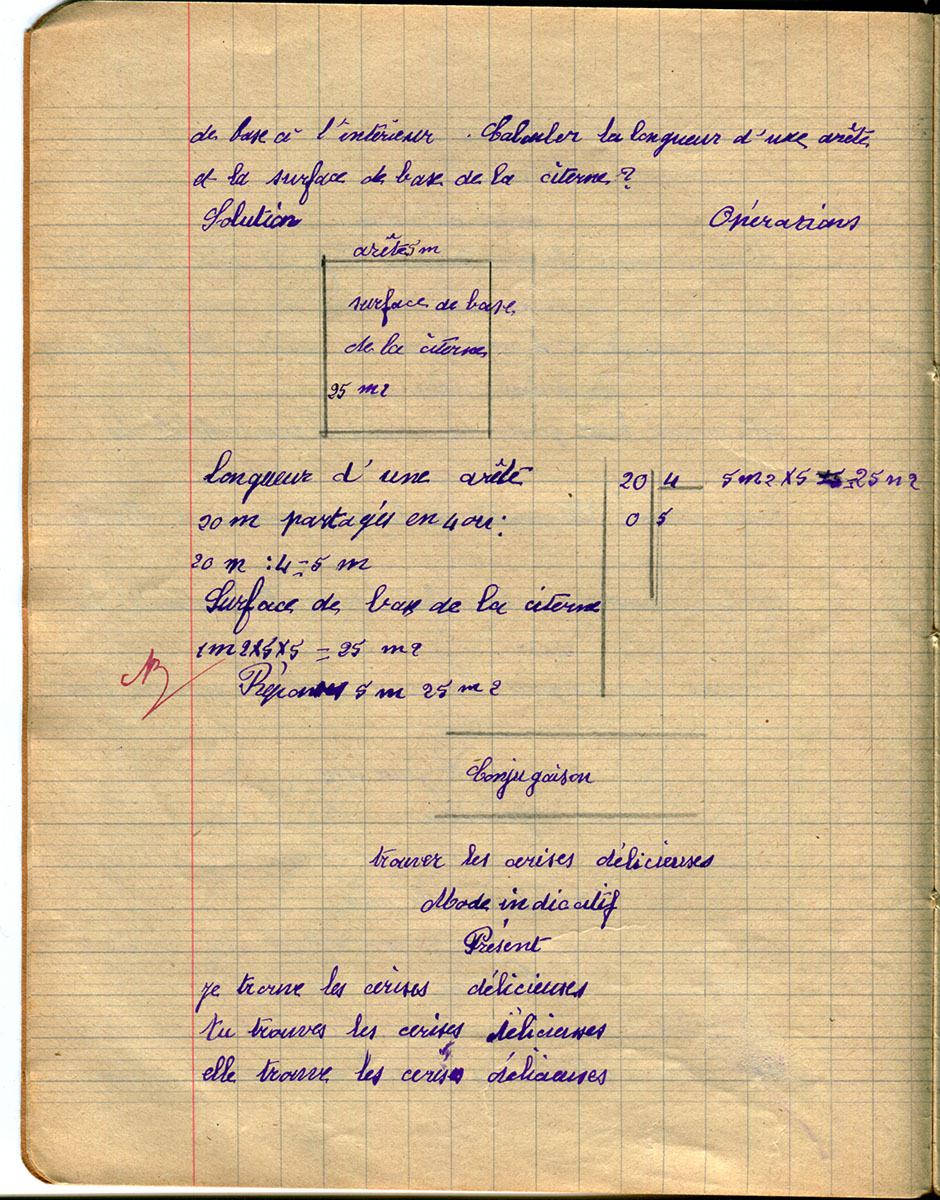 de base à l'intérieur. Calculer la longueur d'une arête
et la surface de base de la citerne?
Solution
Opérations
arête 5 m
surface de base
de la citerne
25 m2
longueur d'une arête
20 m partagés en 4 ou:
20 m : 4 = 5 m
Surface de base de la citerne
1m2 X5X5 = 25 m2
Réponse 5 m 25 m2
20 4
0 5
5m2 X5 = 25 m2
Conjugaison
trouver les cerises délicieuses
Mode indicatif
Présent
je trouve les cerises délicieuses
tu trouves les cerises délicieuses
elle trouve les cerises délicieuses